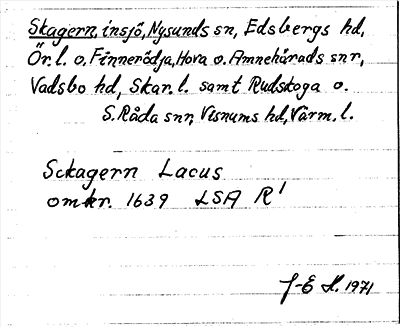 Skagern, insjö, Nysunds sn, Edsbergs hd,
Ör. l. o. Finnerödja, Hova o. Amnehärads snr,
Vadsbo hd, Skar. l. samt Rudskoga o.
S. Råda snr, Visnums hd, Värm. l.
Sckagern Lacus
omkr. 1639 LSA R¹
J-E H. 1971